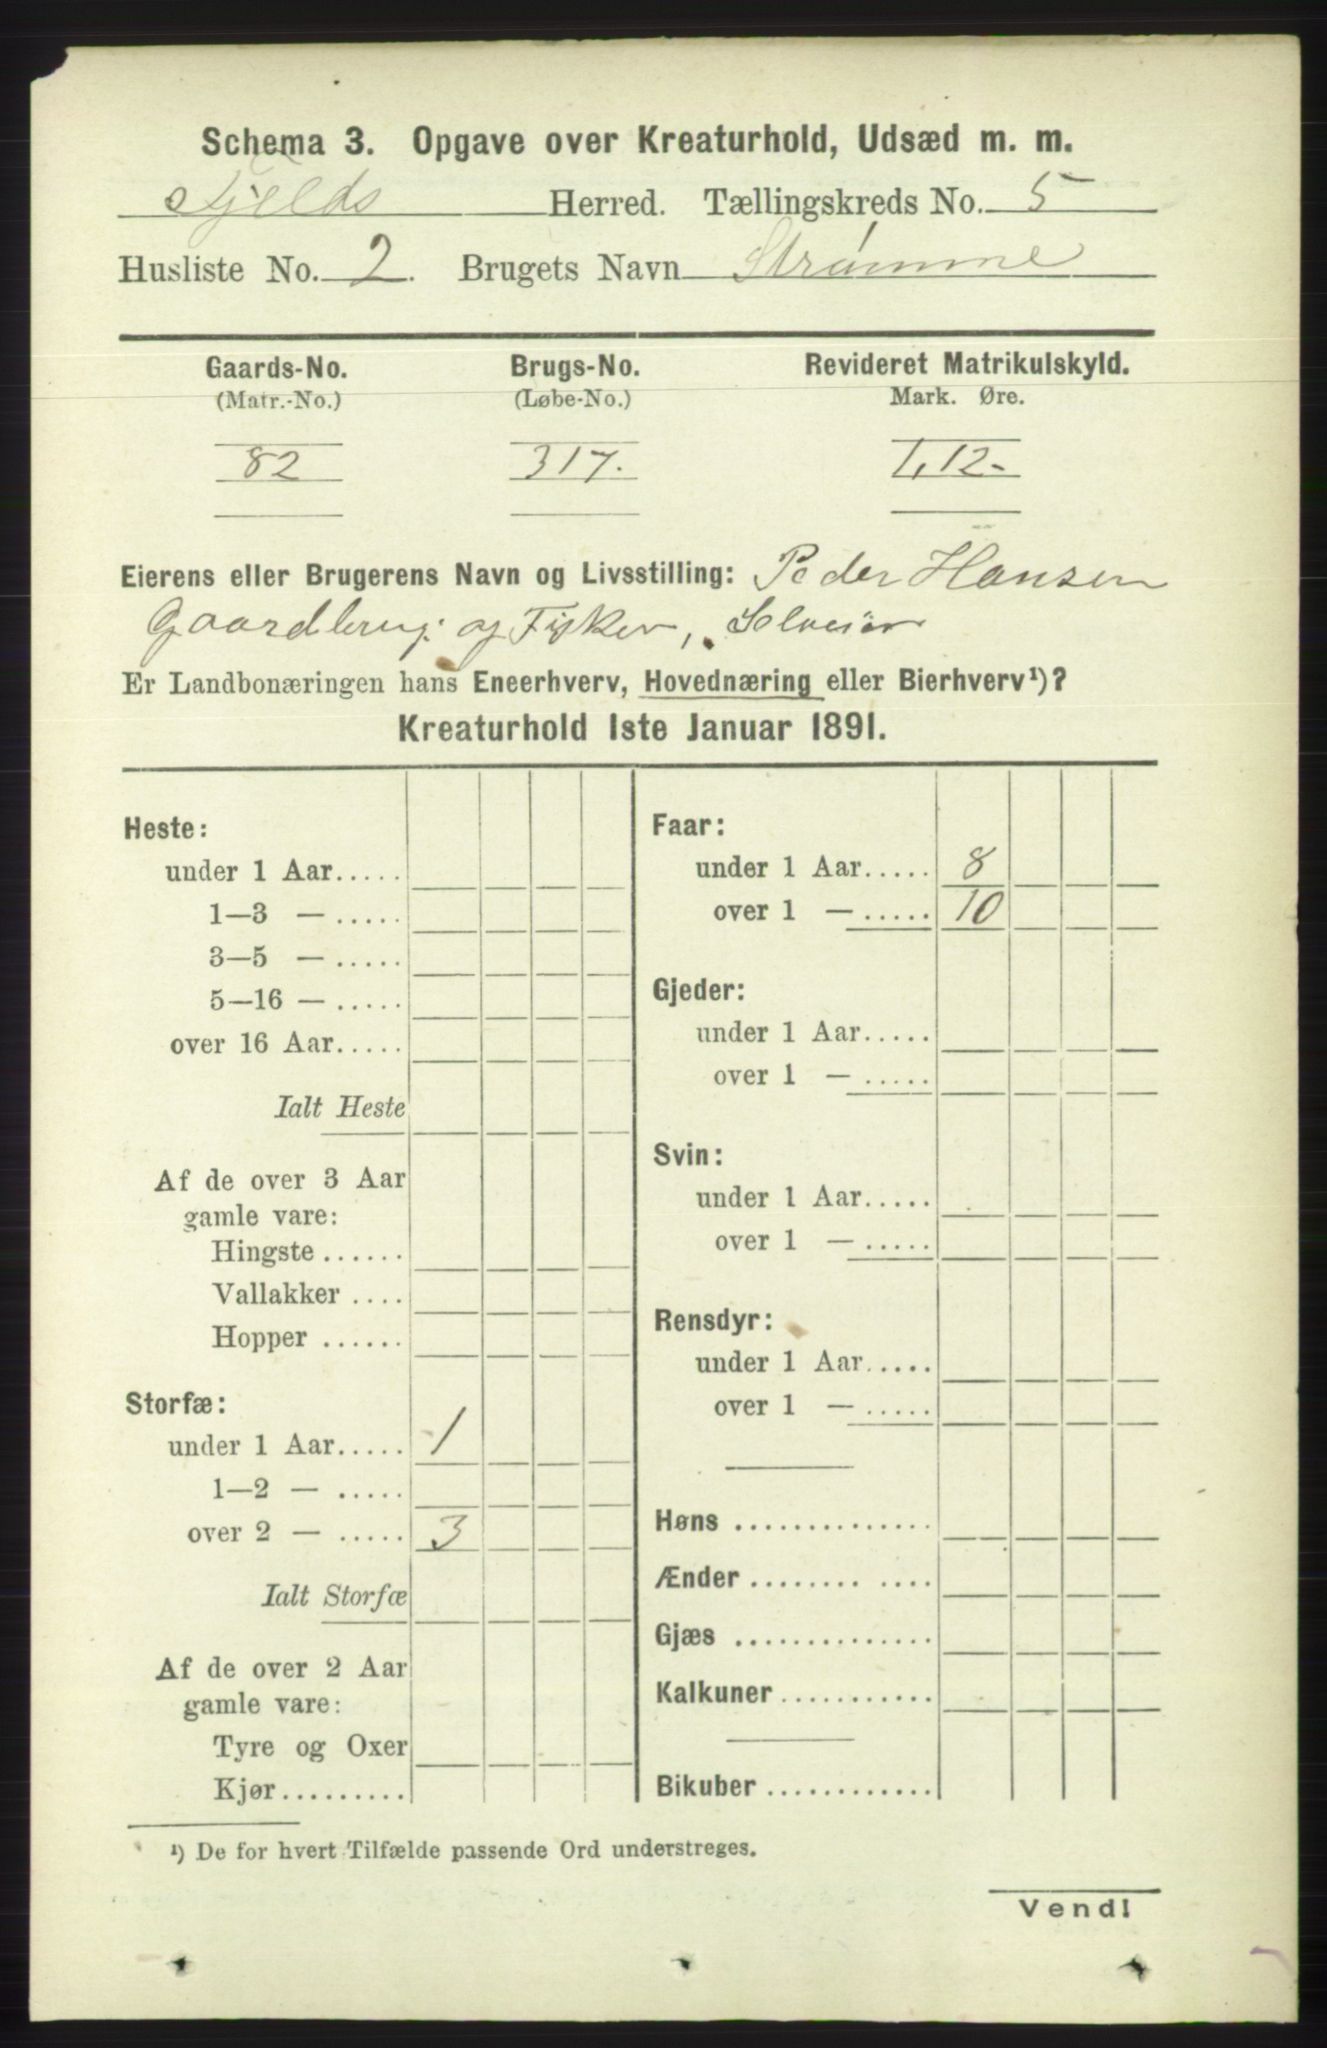 Schema 3. Opgave over Kreaturhold, Udsæd m. m.
Fjelds Herred. Tællingskreds No. 5
Husliste No. 2. Brugets Navn Strømme
Gaards-No. Brugs-No. Revideret Matrikulskyld.
(Matr.-No.) (Løbe-No.) Mark. Øre.
82 317. 1,12-
Eierens eller Brugerens Navn og Livsstilling: Peder Hansen
Gaardbrug. og Fisker, Selveier
Er Landbonæringen hans Eneerhverv, Hovednæring eller Bierhverv¹)?
Kreaturhold 1ste Januar 1891.
Heste:
under 1 Aar.....
1—3 — .....
3—5 — .....
5—16 — .....
over 16 Aar.....
Ialt Heste
Af de over 3 Aar
gamle vare:
Hingste ......
Vallakker ....
Hopper ......
Storfæ:
under 1 Aar..... 1
1—2 — .....
over 2 — ..... 3
Ialt Storfæ
Af de over 2 Aar
gamle vare:
Tyre og Oxer
Kjør.........
Faar:
under 1 Aar..... 8
over 1 — ..... 10
Gjeder:
under 1 Aar.....
over 1 — .....
Svin:
under 1 Aar.....
over 1 — .....
Rensdyr:
under 1 Aar.....
over 1 — .....
Høns ..............
Ænder ........ ....
Gjæs ..............
Kalkuner...........
Bikuber ............
¹) De for hvert Tilfælde passende Ord understreges.
Vend!